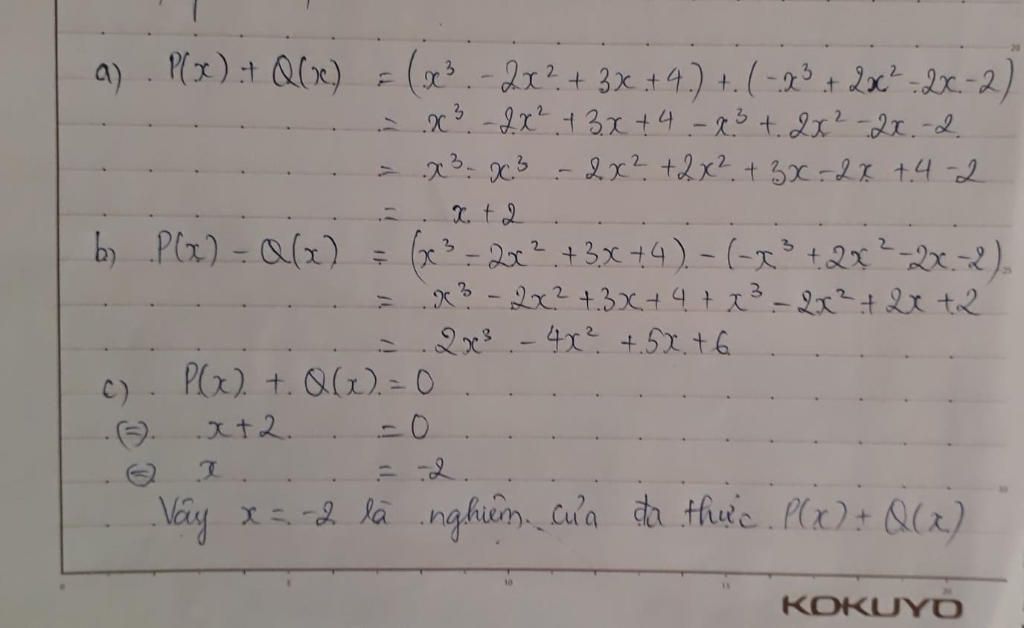 a) P(x) + Q(x) = (x³ - 2x² + 3x + 4) + (-x³ + 2x² - 2x - 2)
= x³ - 2x² + 3x + 4 - x³ + 2x² - 2x - 2
= x³ - x³ - 2x² + 2x² + 3x - 2x + 4 - 2
= x + 2
b) P(x) - Q(x) = (x³ - 2x² + 3x + 4) - (-x³ + 2x² - 2x - 2)
= x³ - 2x² + 3x + 4 + x³ - 2x² + 2x + 2
= 2x³ - 4x² + 5x + 6
c) P(x) + Q(x) = 0
(=) x + 2 = 0
(=) x = -2
Vây x = -2 là nghiêm của đa thức P(x) + Q(x)
0 5 10 15 20
KOKUYO